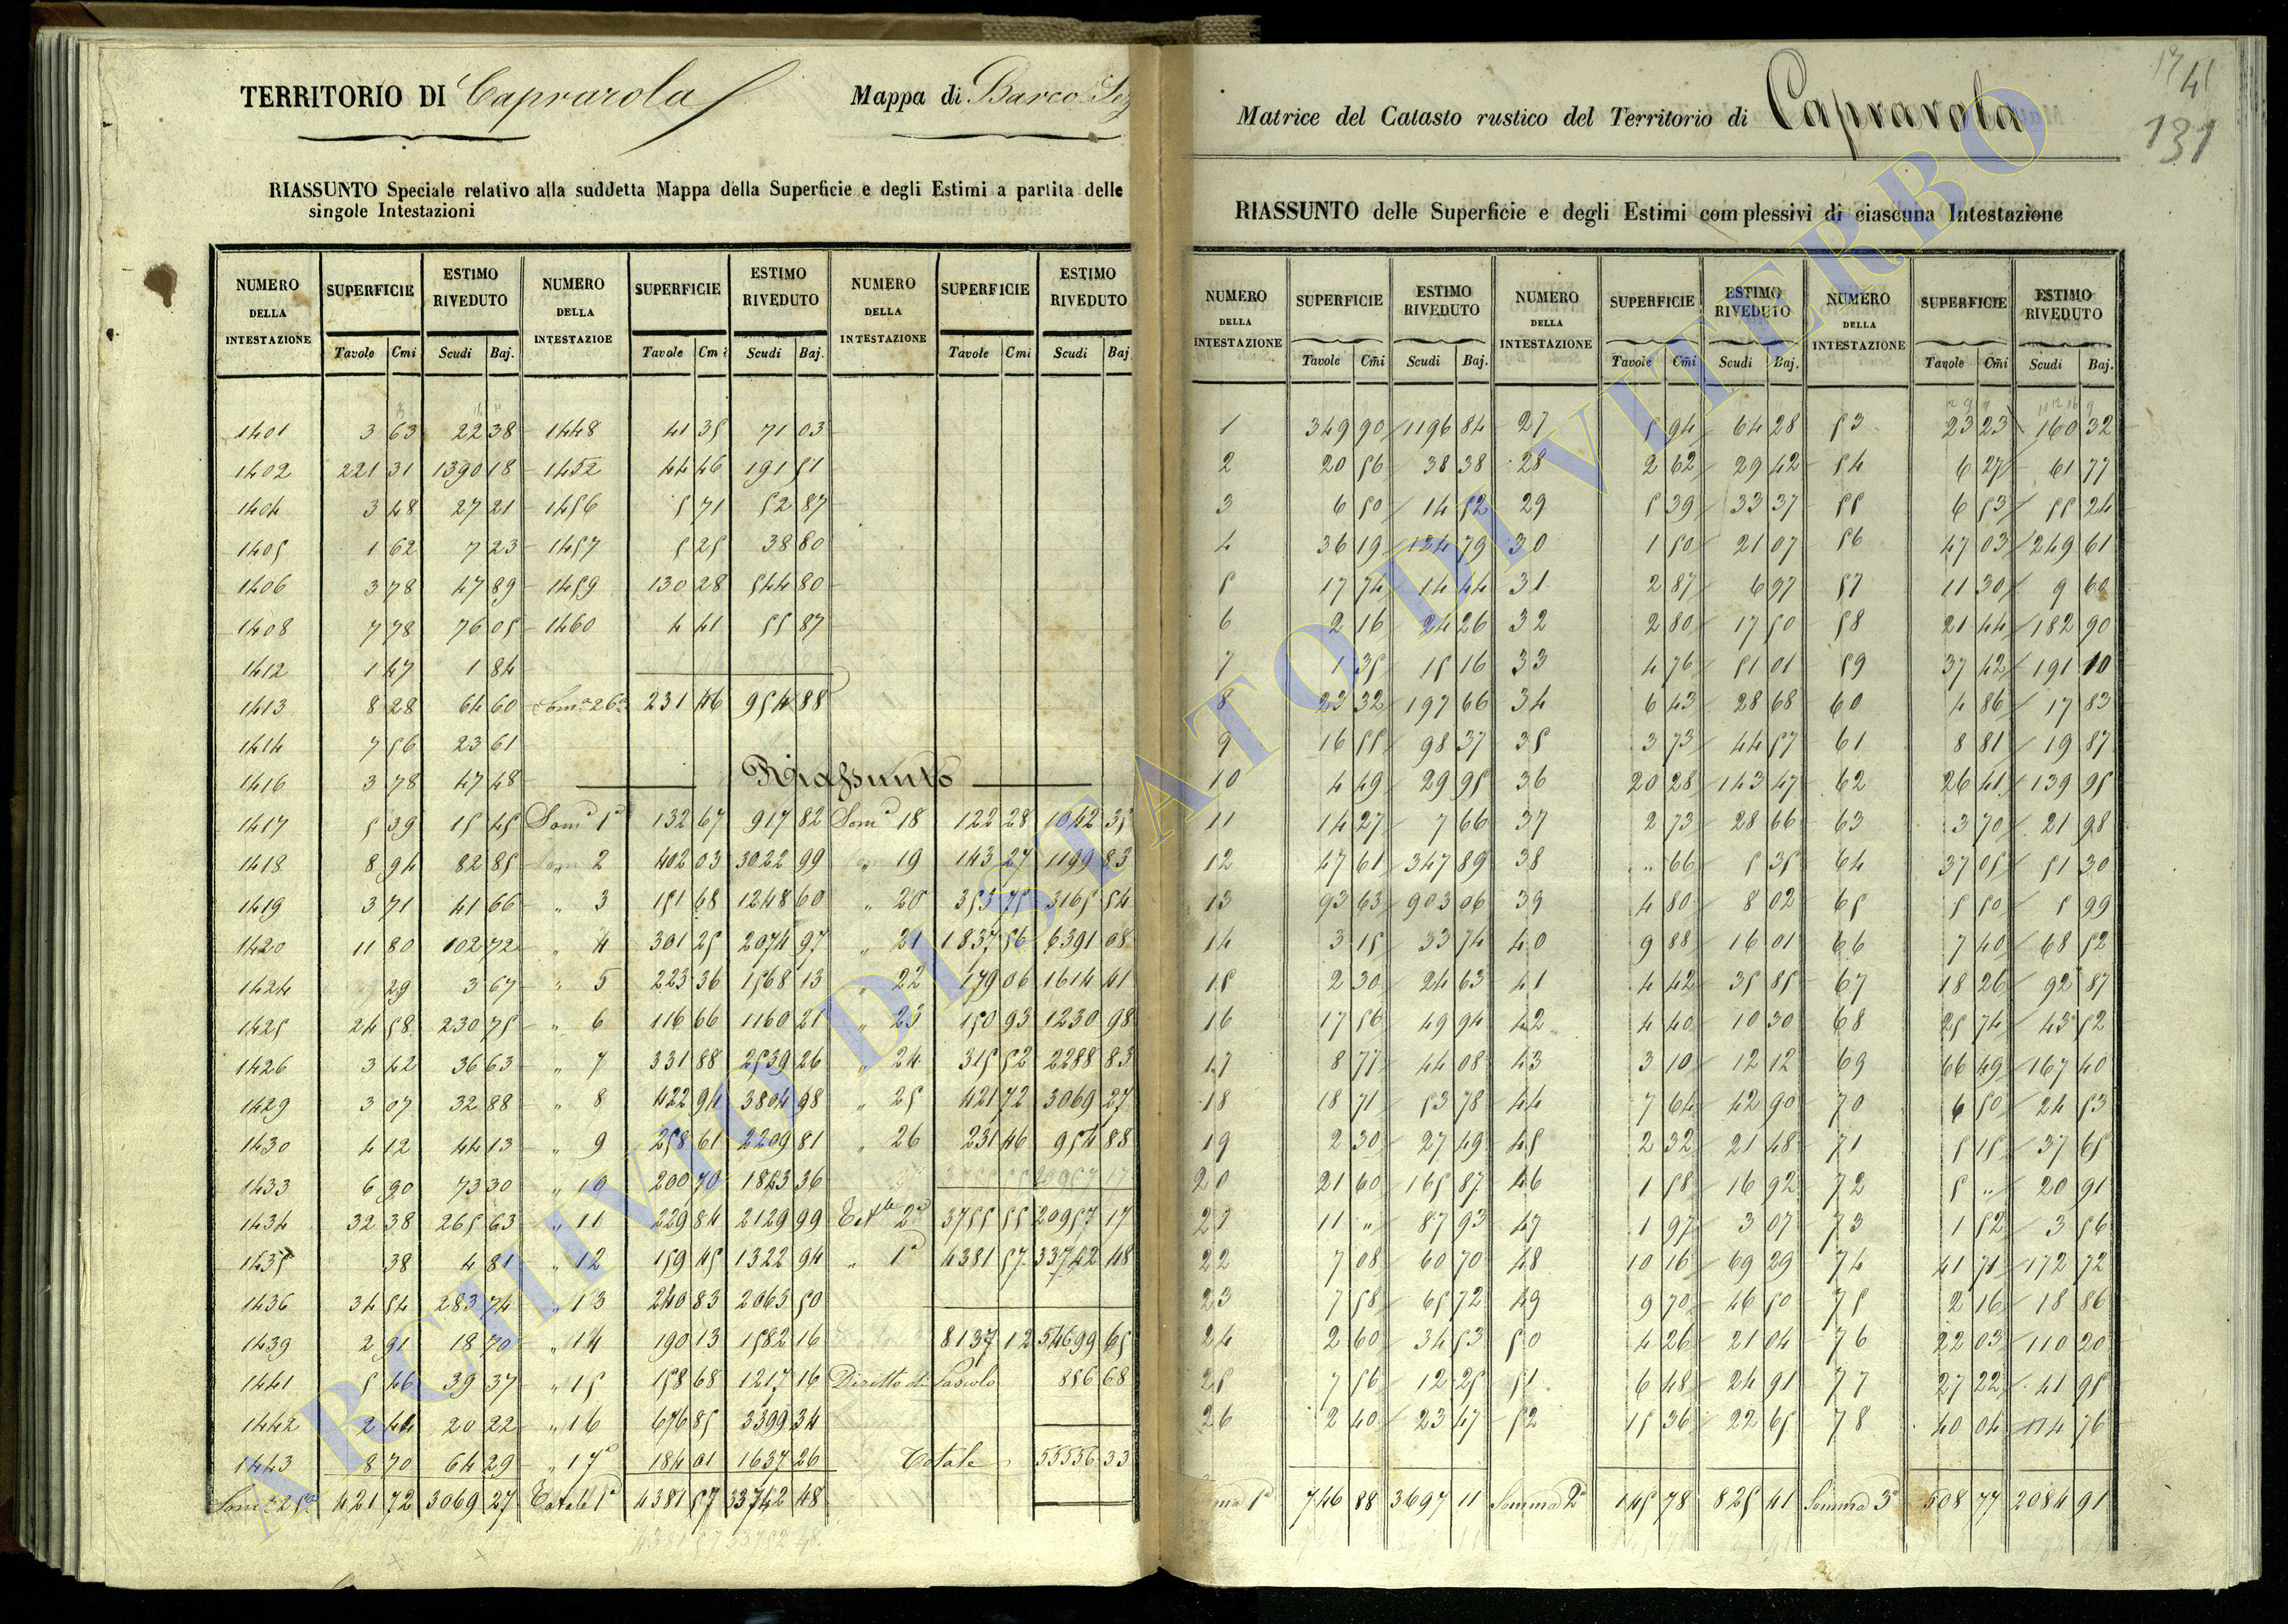 TERRITORIO DI Caprarola Mappa di Barco Sez
RIASSUNTO Speciale relativo alla suddetta Mappa della Superficie e degli Estimi a partita delle
singole Intestazioni
NUMERO DELLA INTESTAZIONE SUPERFICIE ESTIMO RIVEDUTO NUMERO DELLA INTESTAZIOE SUPERFICIE ESTIMO RIVEDUTO NUMERO DELLA INTESTAZIONE SUPERFICIE ESTIMO RIVEDUTO
Tavole Cmi Scudi Baj. Tavole Cmi Scudi Baj. Tavole Cmi Scudi Baj
1401 3 63 22 38 1448 41 35 71 03
1402 221 31 1390 18 1452 44 46 191 51
1404 3 48 27 21 1456 5 71 52 87
1405 1 62 7 23 1457 5 25 38 80
1406 3 78 47 89 1459 130 28 544 80
1408 7 78 76 05 1460 4 41 55 87
1412 1 47 1 84
1413 8 28 64 60 Som.a 26a 231 46 954 88
1414 7 56 23 61
1416 3 78 47 48 Riassunto
1417 5 39 15 45 Som.a 1a 132 67 917 82 Som.a 18 122 28 1042 35
1418 8 94 82 85 2 402 03 3022 99 " 19 143 27 1199 83
1419 3 71 41 66 " 3 151 68 1248 60 " 20 353 75 3165 54
1420 11 80 102 72 " 4 301 25 2074 97 " 21 1837 56 6391 08
1424 29 3 67 " 5 223 36 1568 13 " 22 179 06 1614 41
1425 24 58 230 75 " 6 116 66 1160 21 " 23 150 93 1230 98
1426 3 42 36 63 " 7 331 88 2539 26 " 24 315 52 2288 83
1429 3 07 32 88 " 8 422 94 3804 98 " 25 421 72 3069 27
1430 4 12 44 13 " 9 258 61 2209 81 " 26 231 46 954 88
1433 6 90 73 30 " 10 200 70 1843 36
1434 32 38 265 63 " 11 229 84 2129 99 Totle 2a 3755 55 20957 17
1435 38 4 81 " 12 159 45 1322 94 " 1a 4381 57 33742 48
1436 34 54 283 74 " 13 240 83 2063 50
1439 2 91 18 70 " 14 190 13 1582 16 8137 12 54699 65
1441 5 46 39 37 " 15 158 68 1217 16 Diritto di Pascolo 856 68
1442 2 44 20 22 " 16 676 85 3399 34
1443 8 70 64 29 " 17a 184 01 1637 26 Totale 55556 33
Som.a 25a 421 72 3069 27 Totale 1a 4381 57 33742 48
41
131
Matrice del Catasto rustico del Territorio di Caprarola
RIASSUNTO delle Superficie e degli Estimi complessivi di ciascuna Intestazione
NUMERO DELLA INTESTAZIONE SUPERFICIE ESTIMO RIVEDUTO NUMERO DELLA INTESTAZIONE SUPERFICIE ESTIMO RIVEDUTO NUMERO DELLA INTESTAZIONE SUPERFICIE ESTIMO RIVEDUTO
Tavole Cmi Scudi Baj. Tavole Cmi Scudi Baj. Tavole Cmi Scudi Baj.
1 349 90 1196 84 27 5 94 64 28 53 23 23 160 32
2 20 56 38 38 28 2 62 29 42 54 6 27 61 77
3 6 50 14 52 29 5 39 33 37 55 6 53 55 24
4 36 19 134 79 30 1 50 21 07 56 47 03 249 61
5 17 74 14 44 31 2 87 6 97 57 11 30 9 60
6 2 16 24 26 32 2 80 17 50 58 21 44 182 90
7 1 35 15 16 33 4 76 51 01 59 37 42 191 10
8 23 32 197 66 34 6 43 28 68 60 4 86 17 83
9 16 55 98 37 35 3 73 44 57 61 8 81 19 87
10 4 49 29 95 36 20 28 143 47 62 26 41 139 95
11 14 27 7 66 37 2 73 28 66 63 3 70 21 98
12 47 61 347 89 38 " 66 5 35 64 37 05 51 30
13 93 63 903 06 39 4 80 8 02 65 5 50 5 99
14 3 15 33 74 40 9 88 16 01 66 7 40 68 52
15 2 30 24 63 41 4 42 35 85 67 18 26 92 87
16 17 56 49 94 42 4 40 10 30 68 25 74 43 52
17 8 77 44 08 43 3 10 12 12 69 66 49 167 40
18 18 71 53 78 44 7 64 42 90 70 6 50 24 53
19 2 30 27 49 45 2 32 21 48 71 5 15 37 65
20 21 60 165 87 46 1 58 16 92 72 5 " 20 91
21 11 " 87 93 47 1 97 3 07 73 1 52 3 56
22 7 08 60 70 48 10 16 69 29 74 41 71 172 72
23 7 58 65 72 49 9 70 46 50 75 2 16 18 86
24 2 60 34 53 50 4 26 21 04 76 22 03 110 20
25 7 56 12 25 51 6 48 24 91 77 27 22 41 95
26 2 40 23 47 52 15 36 22 65 78 40 04 114 76
ma 1a 746 88 3697 11 Somma 2a 145 78 825 41 Somma 3a 508 77 2084 91
ARCHIVIO DI STATO DI VITERBO